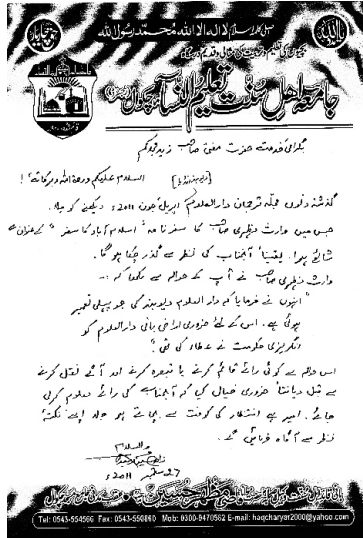 اصل کلمہ اسلام لا الہ الا اللہ محمد رسول اللہ
یا اللہ مدد
جامعہ اہل سنت تعلیم النساء چکوال
بگرامی خدمت حضرت مفتی صاحب زید مجدکم
السلام علیکم ورحمۃ اللہ وبرکاتہ !
گذشتہ دنوں مجلہ ترجمان دارالعلوم اپریل جون 2011ء دیکھنے کو ملا۔
جس میں وارث مظہری صاحب کا سفر نامہ "اسلام آباد کا سفر" کے عنوان سے
شائع ہوا۔ یقیناً آنجناب کی نظر سے گذر چکا ہو گا۔
وارث مظہری صاحب نے آپ کے حوالہ سے لکھا کہ :-
"انہوں نے فرمایا کہ دار العلوم دیوبند کی جو پہلی تعمیر
ہوئی ہے۔ اس کے لئے ضروری اراضی بانی دارالعلوم کو
انگریزی حکومت نے عطاء کی تھی"
اس حوالہ سے کوئی رائے قائم کرنے یا تبصرہ کرنے اور آگے نقل کرنے
سے قبل دیانتاً ضروری خیال کیا کہ آنجناب کی رائے معلوم کر لی
جائے۔ امید ہے انتظار کی کوفت سے بچاتے ہوئے جلد اپنے نکتۂ
نظر سے آگاہ فرمائیں گے۔
والسلام
27 ستمبر 2011ء
Tel: 0543-554566 Fax: 0543-550840 Mob: 0300-9470582 E-mail: haqcharyar2000@yahoo.com